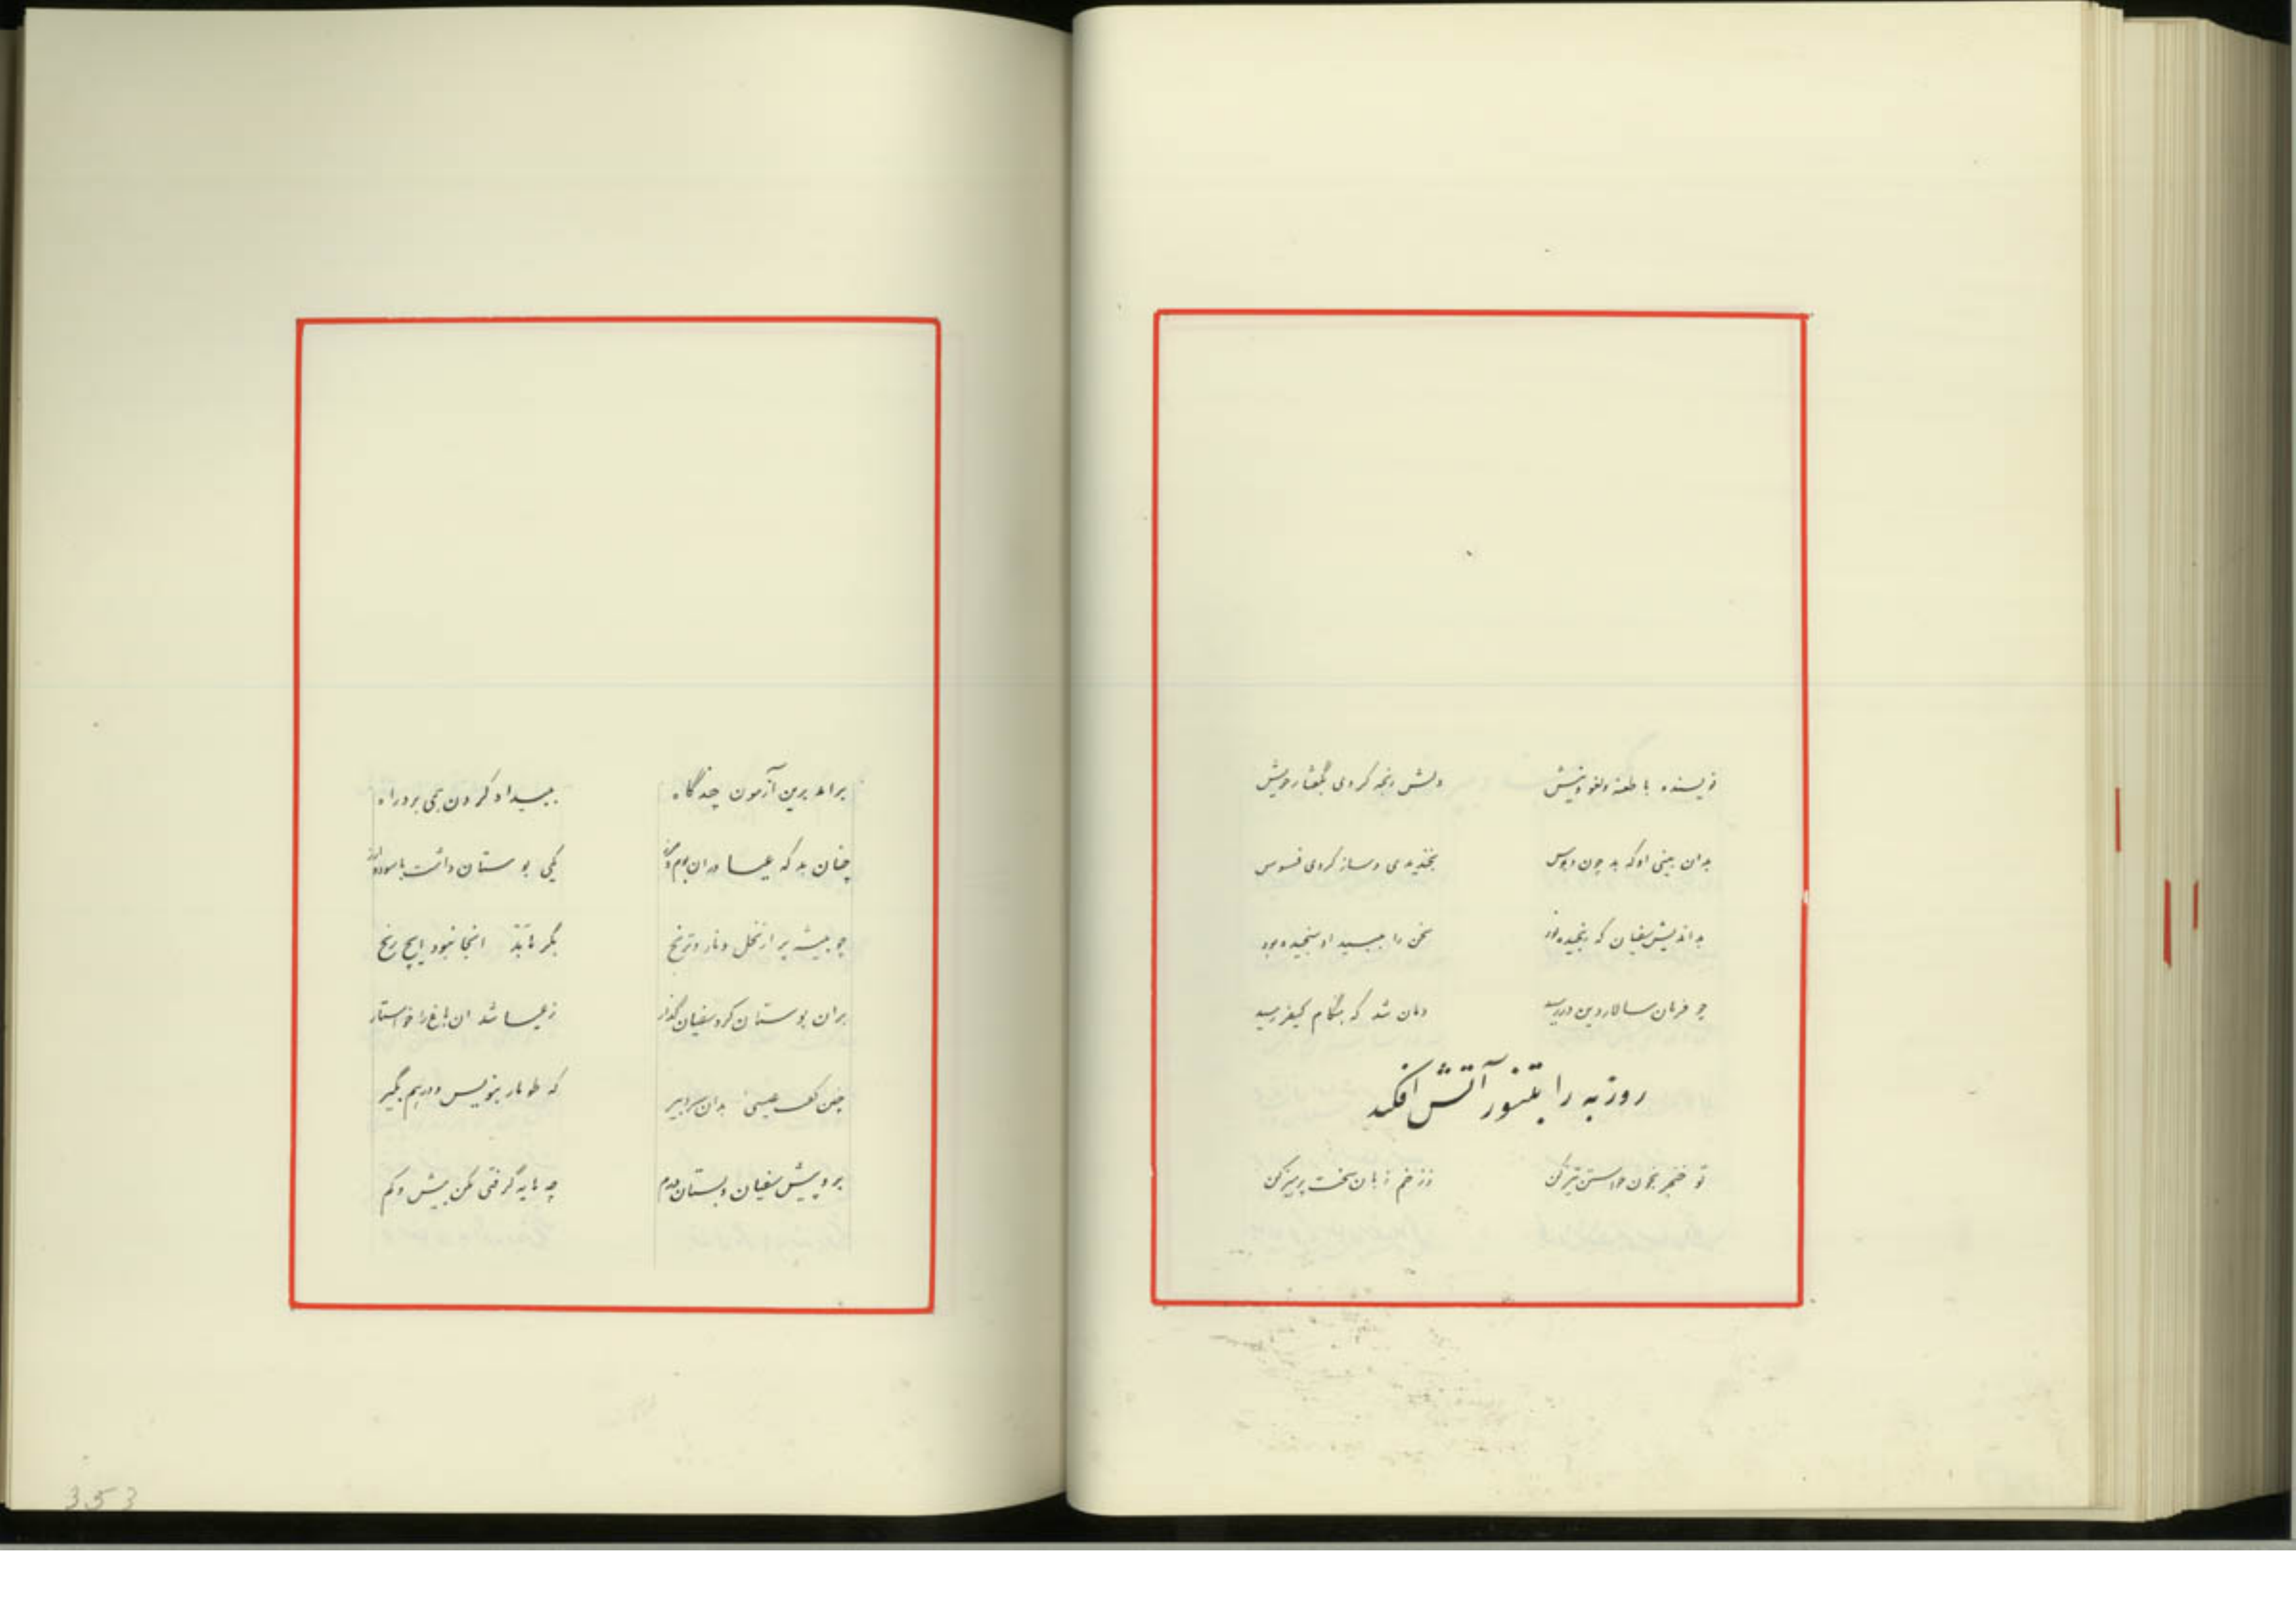 نویسنده با طعنه و لغو و نیش دلش رنجه کردی بگفتار خویش
بدان بینی او که بد چون دبوس بخندیدی و ساز کردی فسوس
بداندیش سفیان که رنجیده بود سخن را
چو فرمان سالار دین در رسید دمان شد که هنگام کیفر رسید
روزبه را بتنور آتش افکند
تو خنجر بخون خواستن تیز کن ز زخم زبان سخت پرهیز کن
برامد برین آزمون چندگاه به بیداد کردن همی برد راه
چنان بد که عیسا دران بوم و مرز یکی بوستان داشت با سود و ارز
چو بیشه پر از نخل و نار و ترنج انجا نبود ایچ رنج
بران بوستان کرد سفیان گذار ز عیسا شد ان باغ را خواستار
چنین گفت عیسی بدان دبیر که طومار بنویس و درهم بگیر
برو پیش سفیان و بستان درم چه مایه گرفتی مکن بیش و کم
353